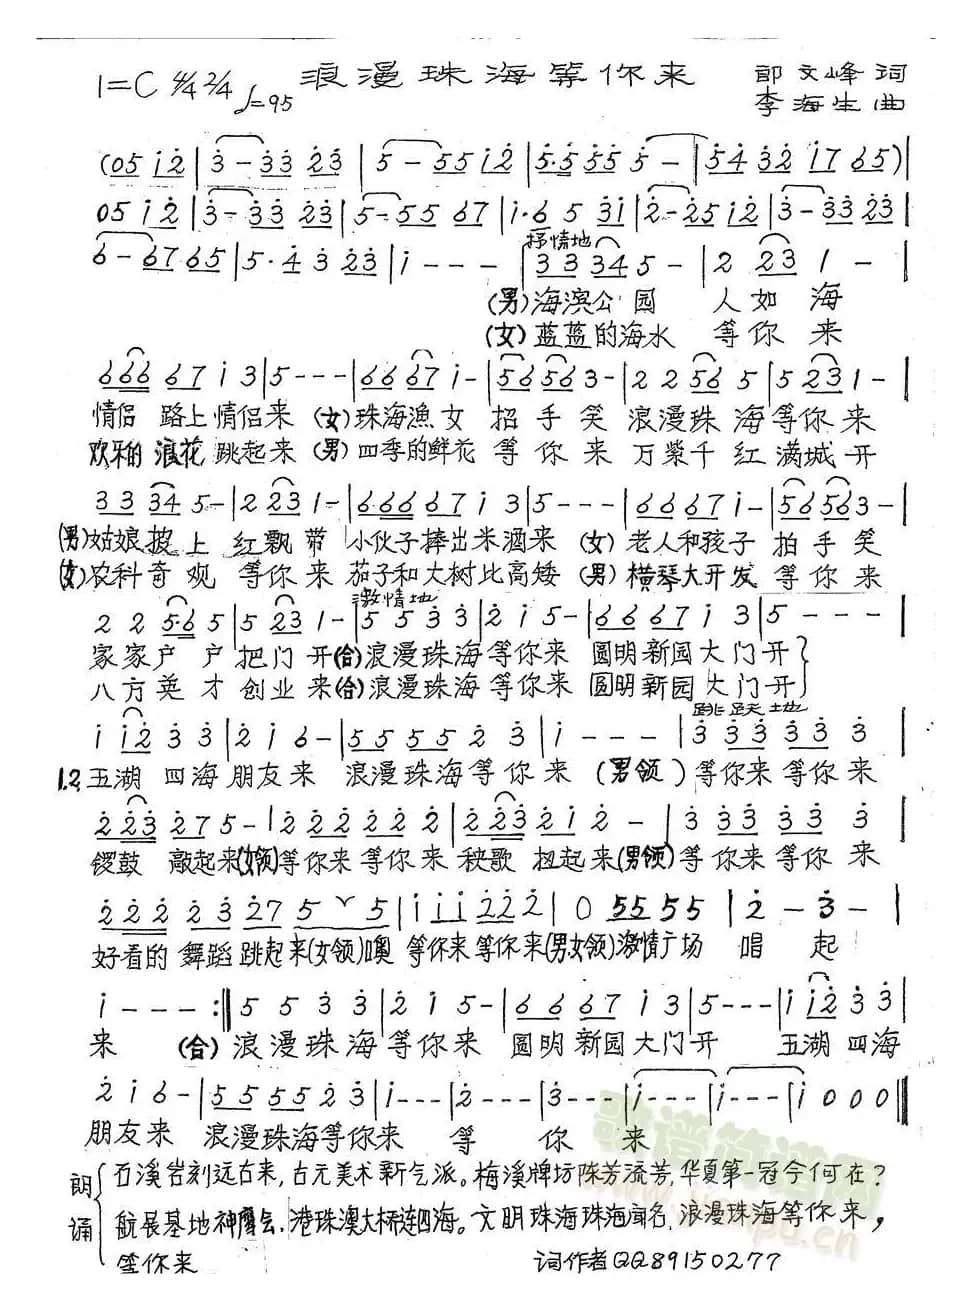 1=C 4/4 2/4 ♩=95 浪漫珠海等你来 郎文峰词
李海生曲
(05 i2 | 3-33 23 | 5-55 i2 | 5·5 55 5- | 54 32 i7 65) |
05 i2 | 3-33 23 | 5-55 67 | i·6 5 3i | 2-25 i2 | 3-33 23 |
抒情地
6-67 65 | 5·4 3 23 | i--- | 33 34 5- | 2 23 1- |
(男)海滨公园 人如海
(女)蓝蓝的海水 等你来
666 67 i 3 | 5--- | 66 67 i- | 56 56 3- | 2 2 56 5 | 5 23 1-
情侣 路上情侣来 (女)珠海漁女 招手笑 浪漫珠海等你来
欢乐的 浪花 跳起来 (男)四季的鲜花 等你来 万紫千红满城开
33 34 5- | 2 23 1- | 666 67 i 3 | 5--- | 66 67 i- | 56 56 3- |
(男)姑娘披上 红飘带 小伙子捧出米酒来 (女)老人和孩子 拍手笑
(女)农科奇观 等你来 茄子和大树比高矮 (男)横琴大开发 等你来
激情地
2 2 56 5 | 5 23 1- | 5 5 3 3 | 2 i 5- | 66 67 i 3 | 5---
家家户户把门开(合)浪漫珠海等你来 圆明新园大门开
八方英才创业来(合)浪漫珠海等你来 圆明新园大门开
跳跃地
i i2 3 3 | 2 i 6- | 55 55 2 3 | i--- | 3 33 33 33 3 |
1.2.五湖四海朋友来 浪漫珠海等你来 (男领)等你来等你来
2 23 275 - | 2 22 22 2 | 2 23 2 i 2- | 3 33 33 3
锣鼓 敲起来(女领)等你来等你来 秧歌 扭起来(男领)等你来等你来
2 22 23 27 5 ˇ 5 | i ii 22 2 | 0 55 55 | 2-3- |
好看的 舞蹈跳起来(女领)噢 等你来等你来(男女领)激情广场 唱起
i--- :‖ 5 5 3 3 | 2 i 5- | 66 67 i 3 | 5--- | i i2 3 3
来 (合)浪漫珠海等你来 圆明新园大门开 五湖四海
2 i 6- | 55 55 2 3 | i--- | 2--- | 3--- | i--- | i--- | i 0 0 0 ‖
朋友来 浪漫珠海等你来 等 你 来
朗诵 石溪岩刻远古来,古元美术新气派。梅溪牌坊陈芳流芳,华夏第一冠今何在?
航展基地神鹰会,港珠澳大桥连四海。文明珠海珠海闻名,浪漫珠海等你来,
等你来 词作者QQ89150277
歌谱简谱网
www.jianpu.cn